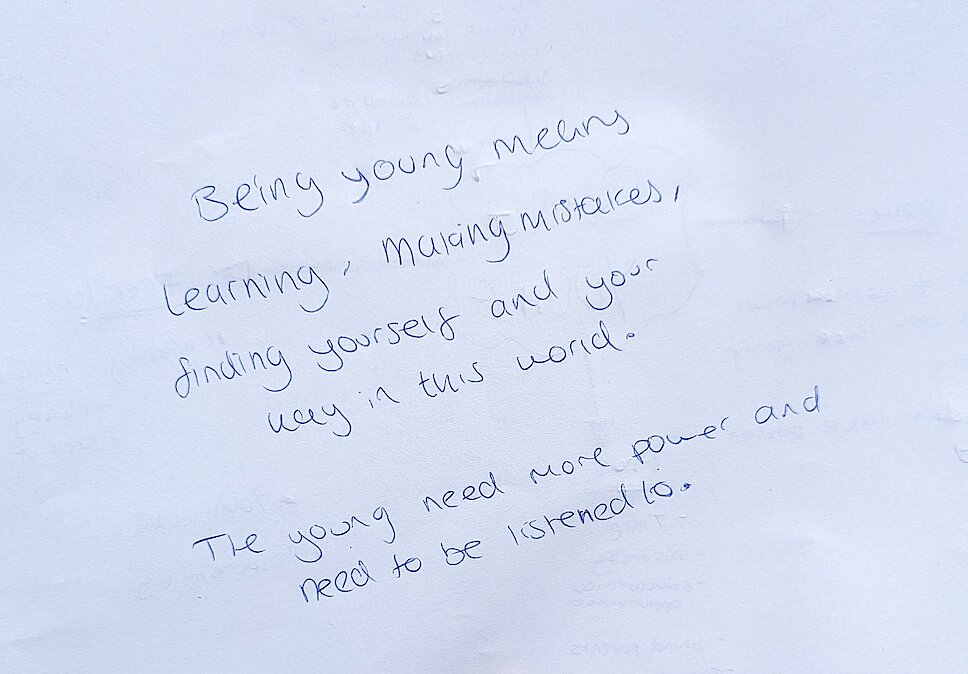 Being young means
learning, making mistakes,
finding yourself and your
way in this world.
The young need more power and
need to be listened to.